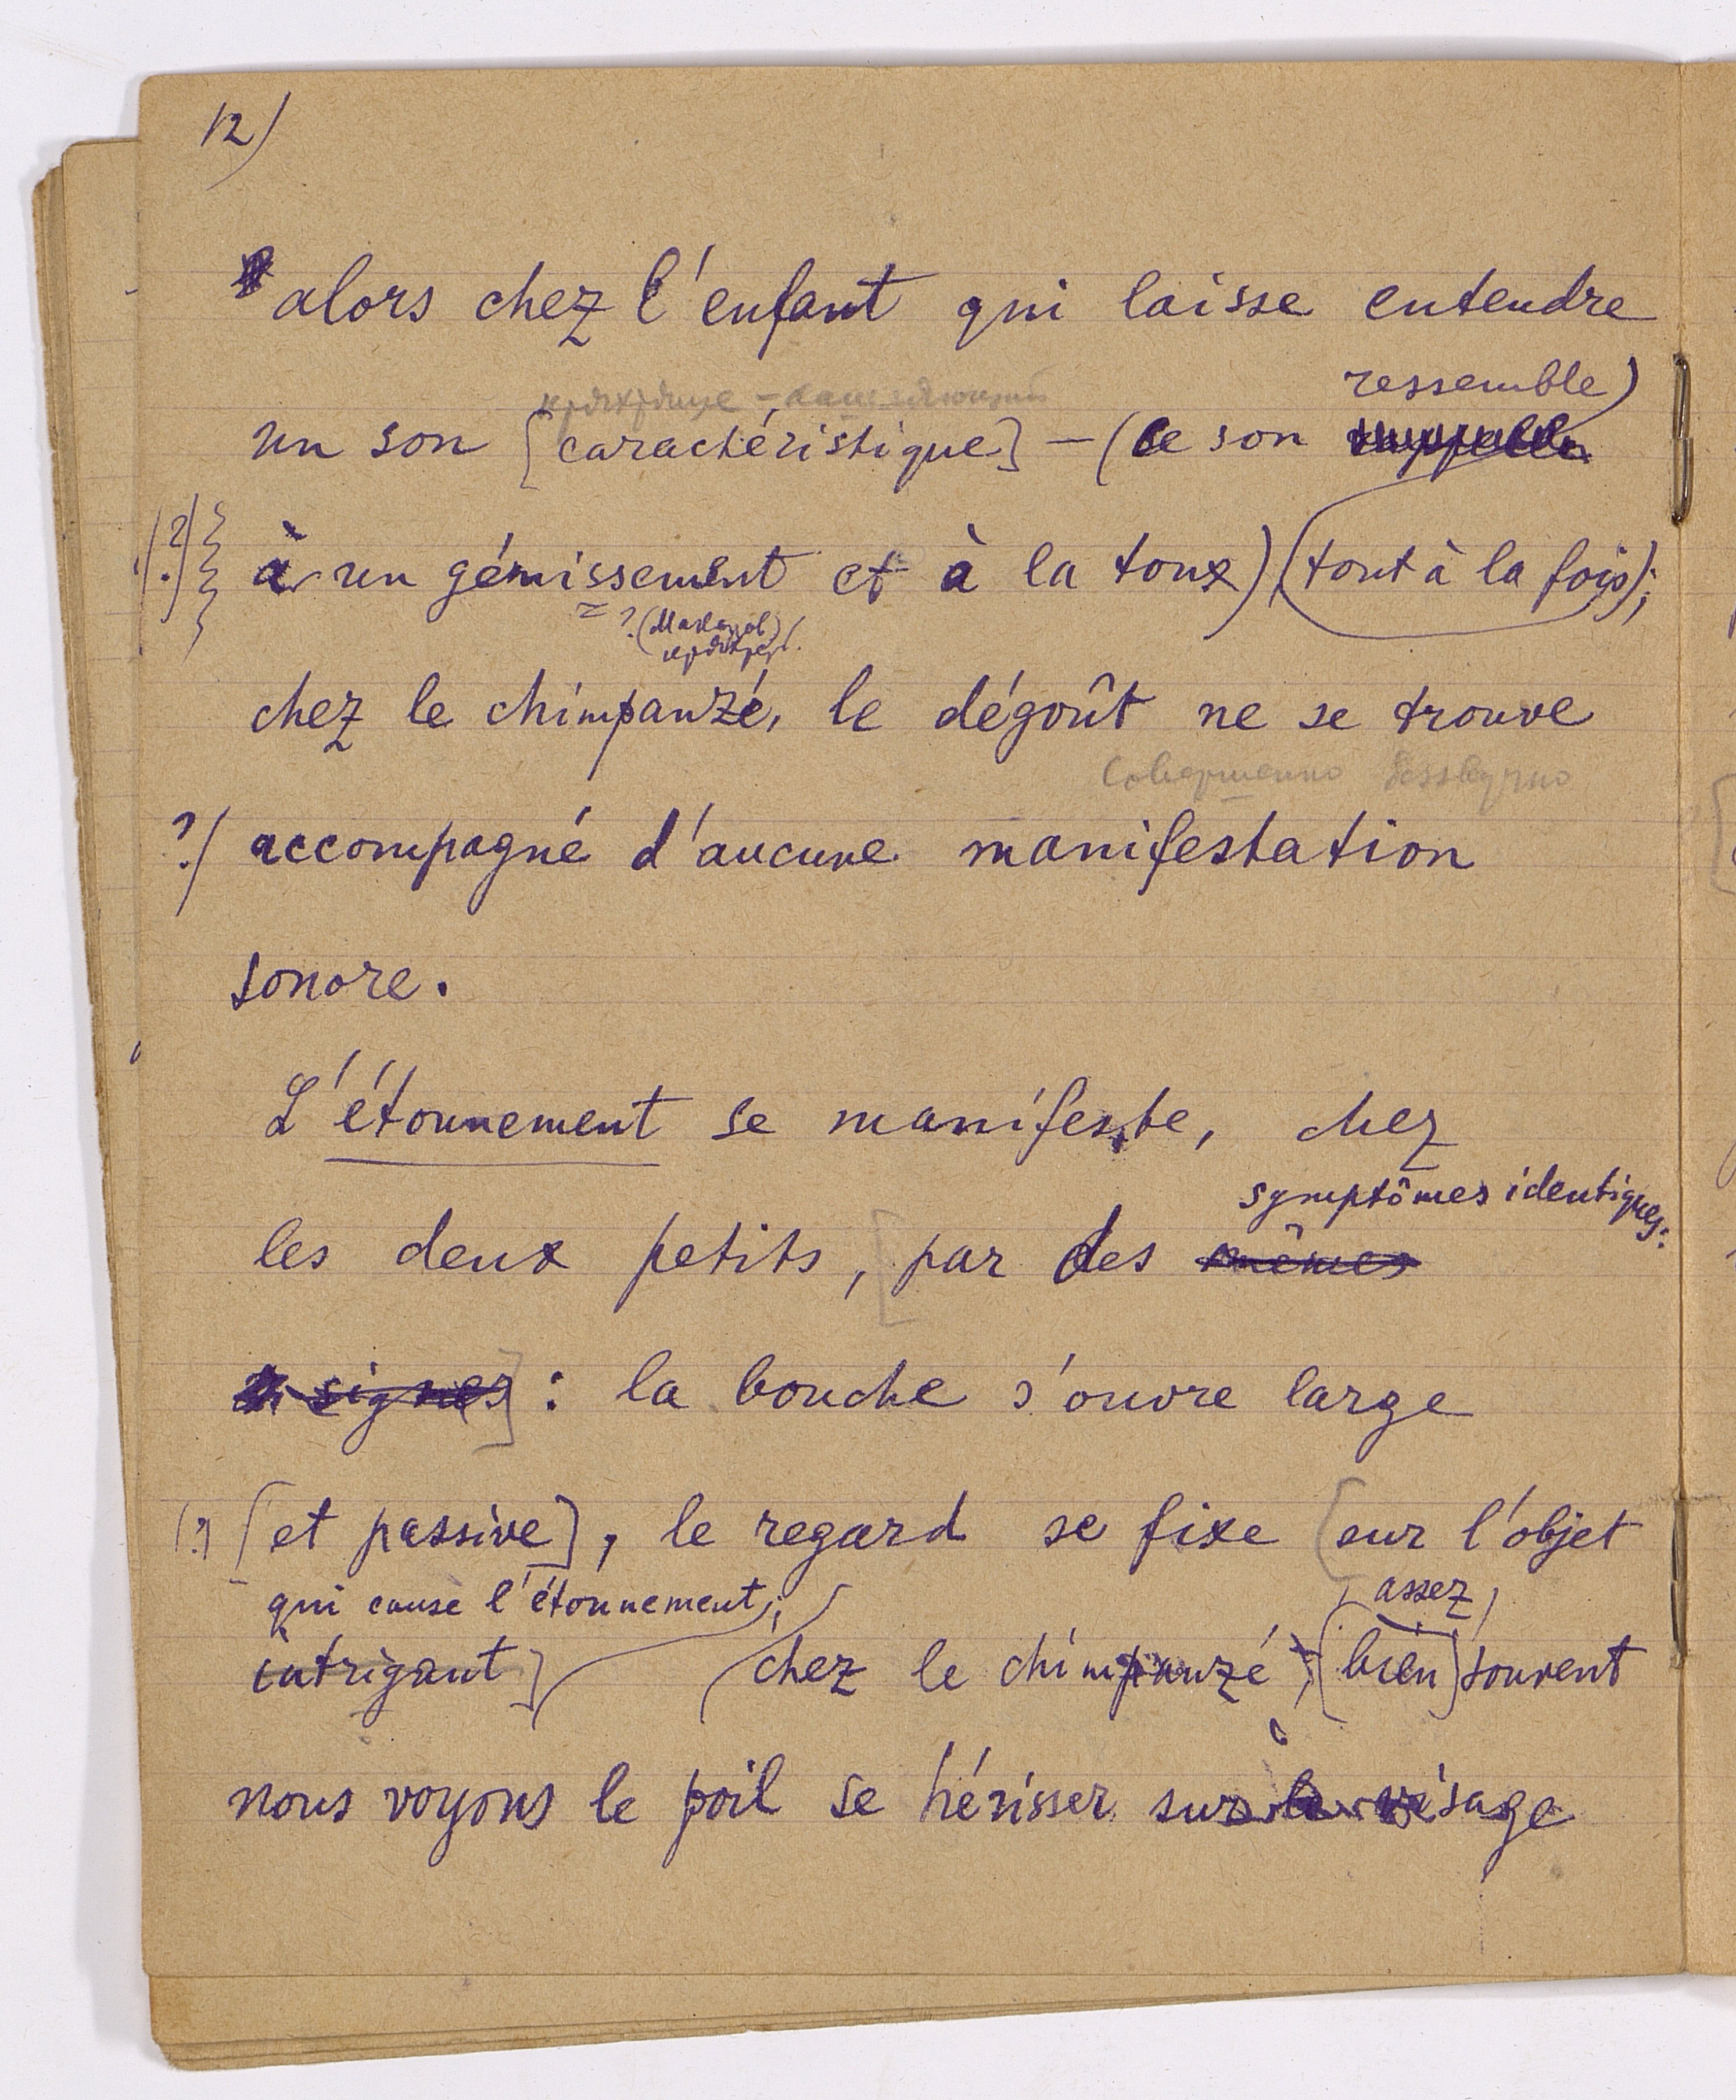 12)
alors chez l'enfant qui laisse entendre
ressemble)
un son [caractéristique] – (ce son
(?) à un gémissement et à la toux) (tout à la fois);
= ?
chez le chimpanzé, le dégoût ne se trouve
Совершенно беззвучно
?) accompagné d'aucune manifestation
sonore.
L'étonnement se manifeste, chez
symptômes identiques:
les deux petits, [par des mêmes
signes] : la bouche s'ouvre large
(?) [et passive], le regard se fixe [sur l'objet
qui cause l'étonnement; assez
intrigant] chez le chimpanzé, [bien] souvent
nous voyons le poil se hérisser sur le visage